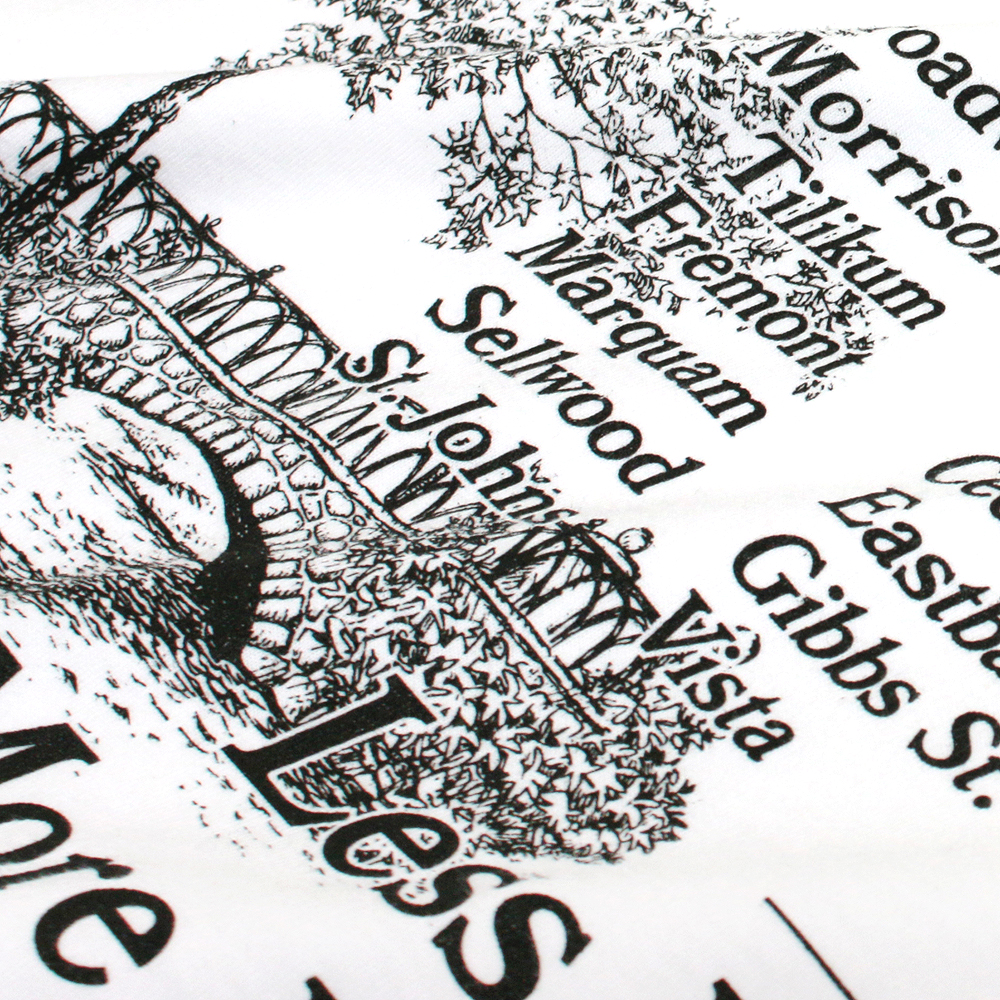 Morrison
Tilikum
Fremont
Marquam
Sellwood
St. Johns
Vista
Gibbs St.
Less
More